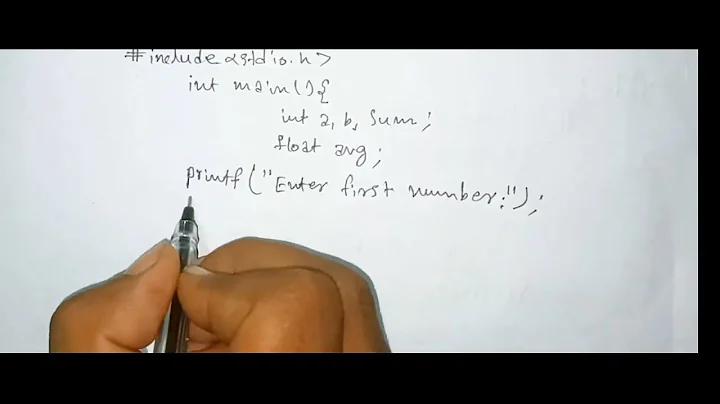 #include<stdio.h>
int main(){
int a, b, Sum;
float avg;
printf("Enter first number:");